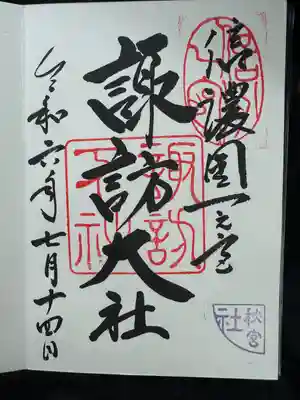 信濃國一之宮
諏訪大社
諏訪
大社
秋宮
社
令和六年七月十四日